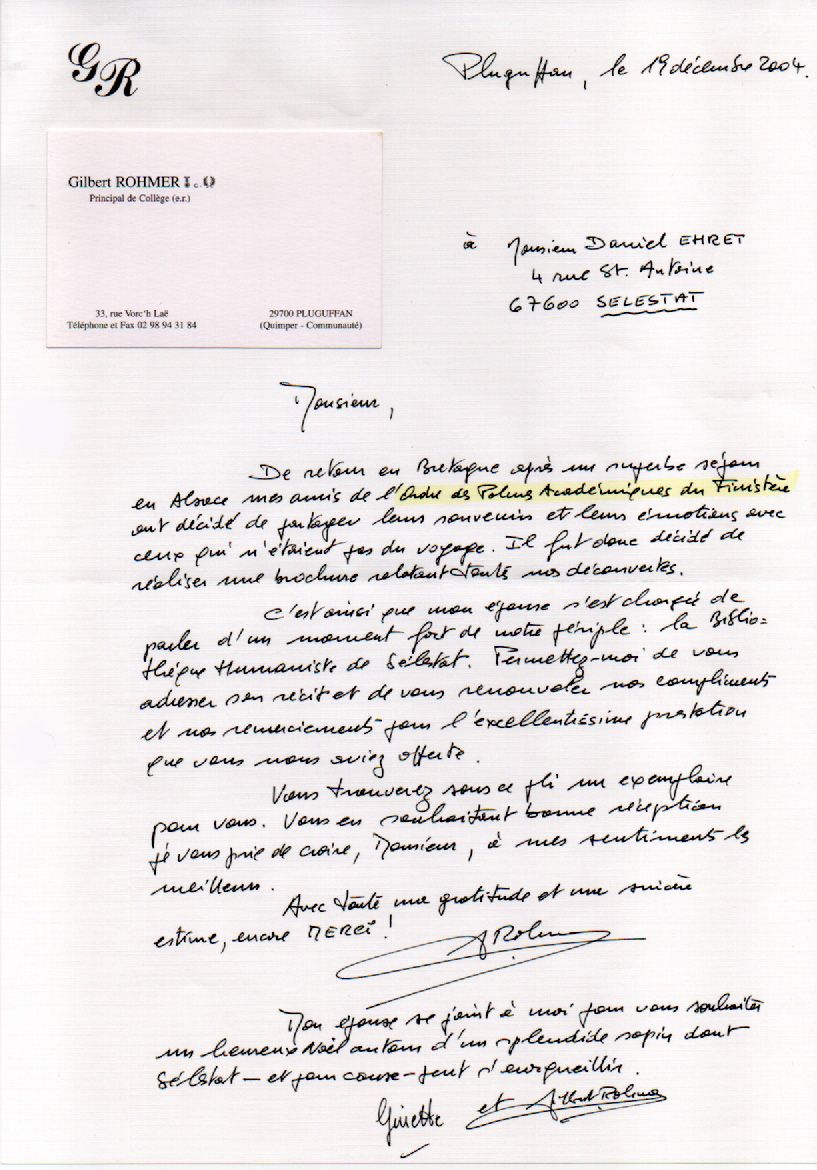 GR
Pluguffan, le 19 décembre 2004.
Gilbert ROHMER
Principal de Collège (e.r.)
33, rue Vorc'h Laë
Téléphone et Fax 02 98 94 31 84
29700 PLUGUFFAN
(Quimper - Communauté)
à Monsieur Daniel EHRET
4 rue St. Antoine
67600 SELESTAT
Monsieur,
De retour en Bretagne après un superbe séjour
en Alsace mes amis de l'Ordre des Palmes Académiques du Finistère
ont décidé de partager leurs souvenirs et leurs émotions avec
ceux qui n'étaient pas du voyage. Il fut donc décidé de
réaliser une brochure relatant toutes nos découvertes.
C'est ainsi que mon épouse s'est chargée de
parler d'un moment fort de notre périple : la Biblio=
thèque Humaniste de Sélestat. Permettez-moi de vous
adresser son récit et de vous renouveler nos compliments
et nos remerciements pour l'excellentissime prestation
que vous nous aviez offerte.
Vous trouverez sous ce pli un exemplaire
pour vous. Vous en souhaitant bonne réception
je vous prie de croire, Monsieur, à mes sentiments les
meilleurs.
Avec toute ma gratitude et une sincère
estime, encore MERCI !
GRohmer
Mon épouse se joint à moi pour vous souhaiter
un heureux Noël autour d'un splendide sapin dont
Sélestat - et pour cause - peut s'enorgueillir.
Ginette et Gilbert Rohmer